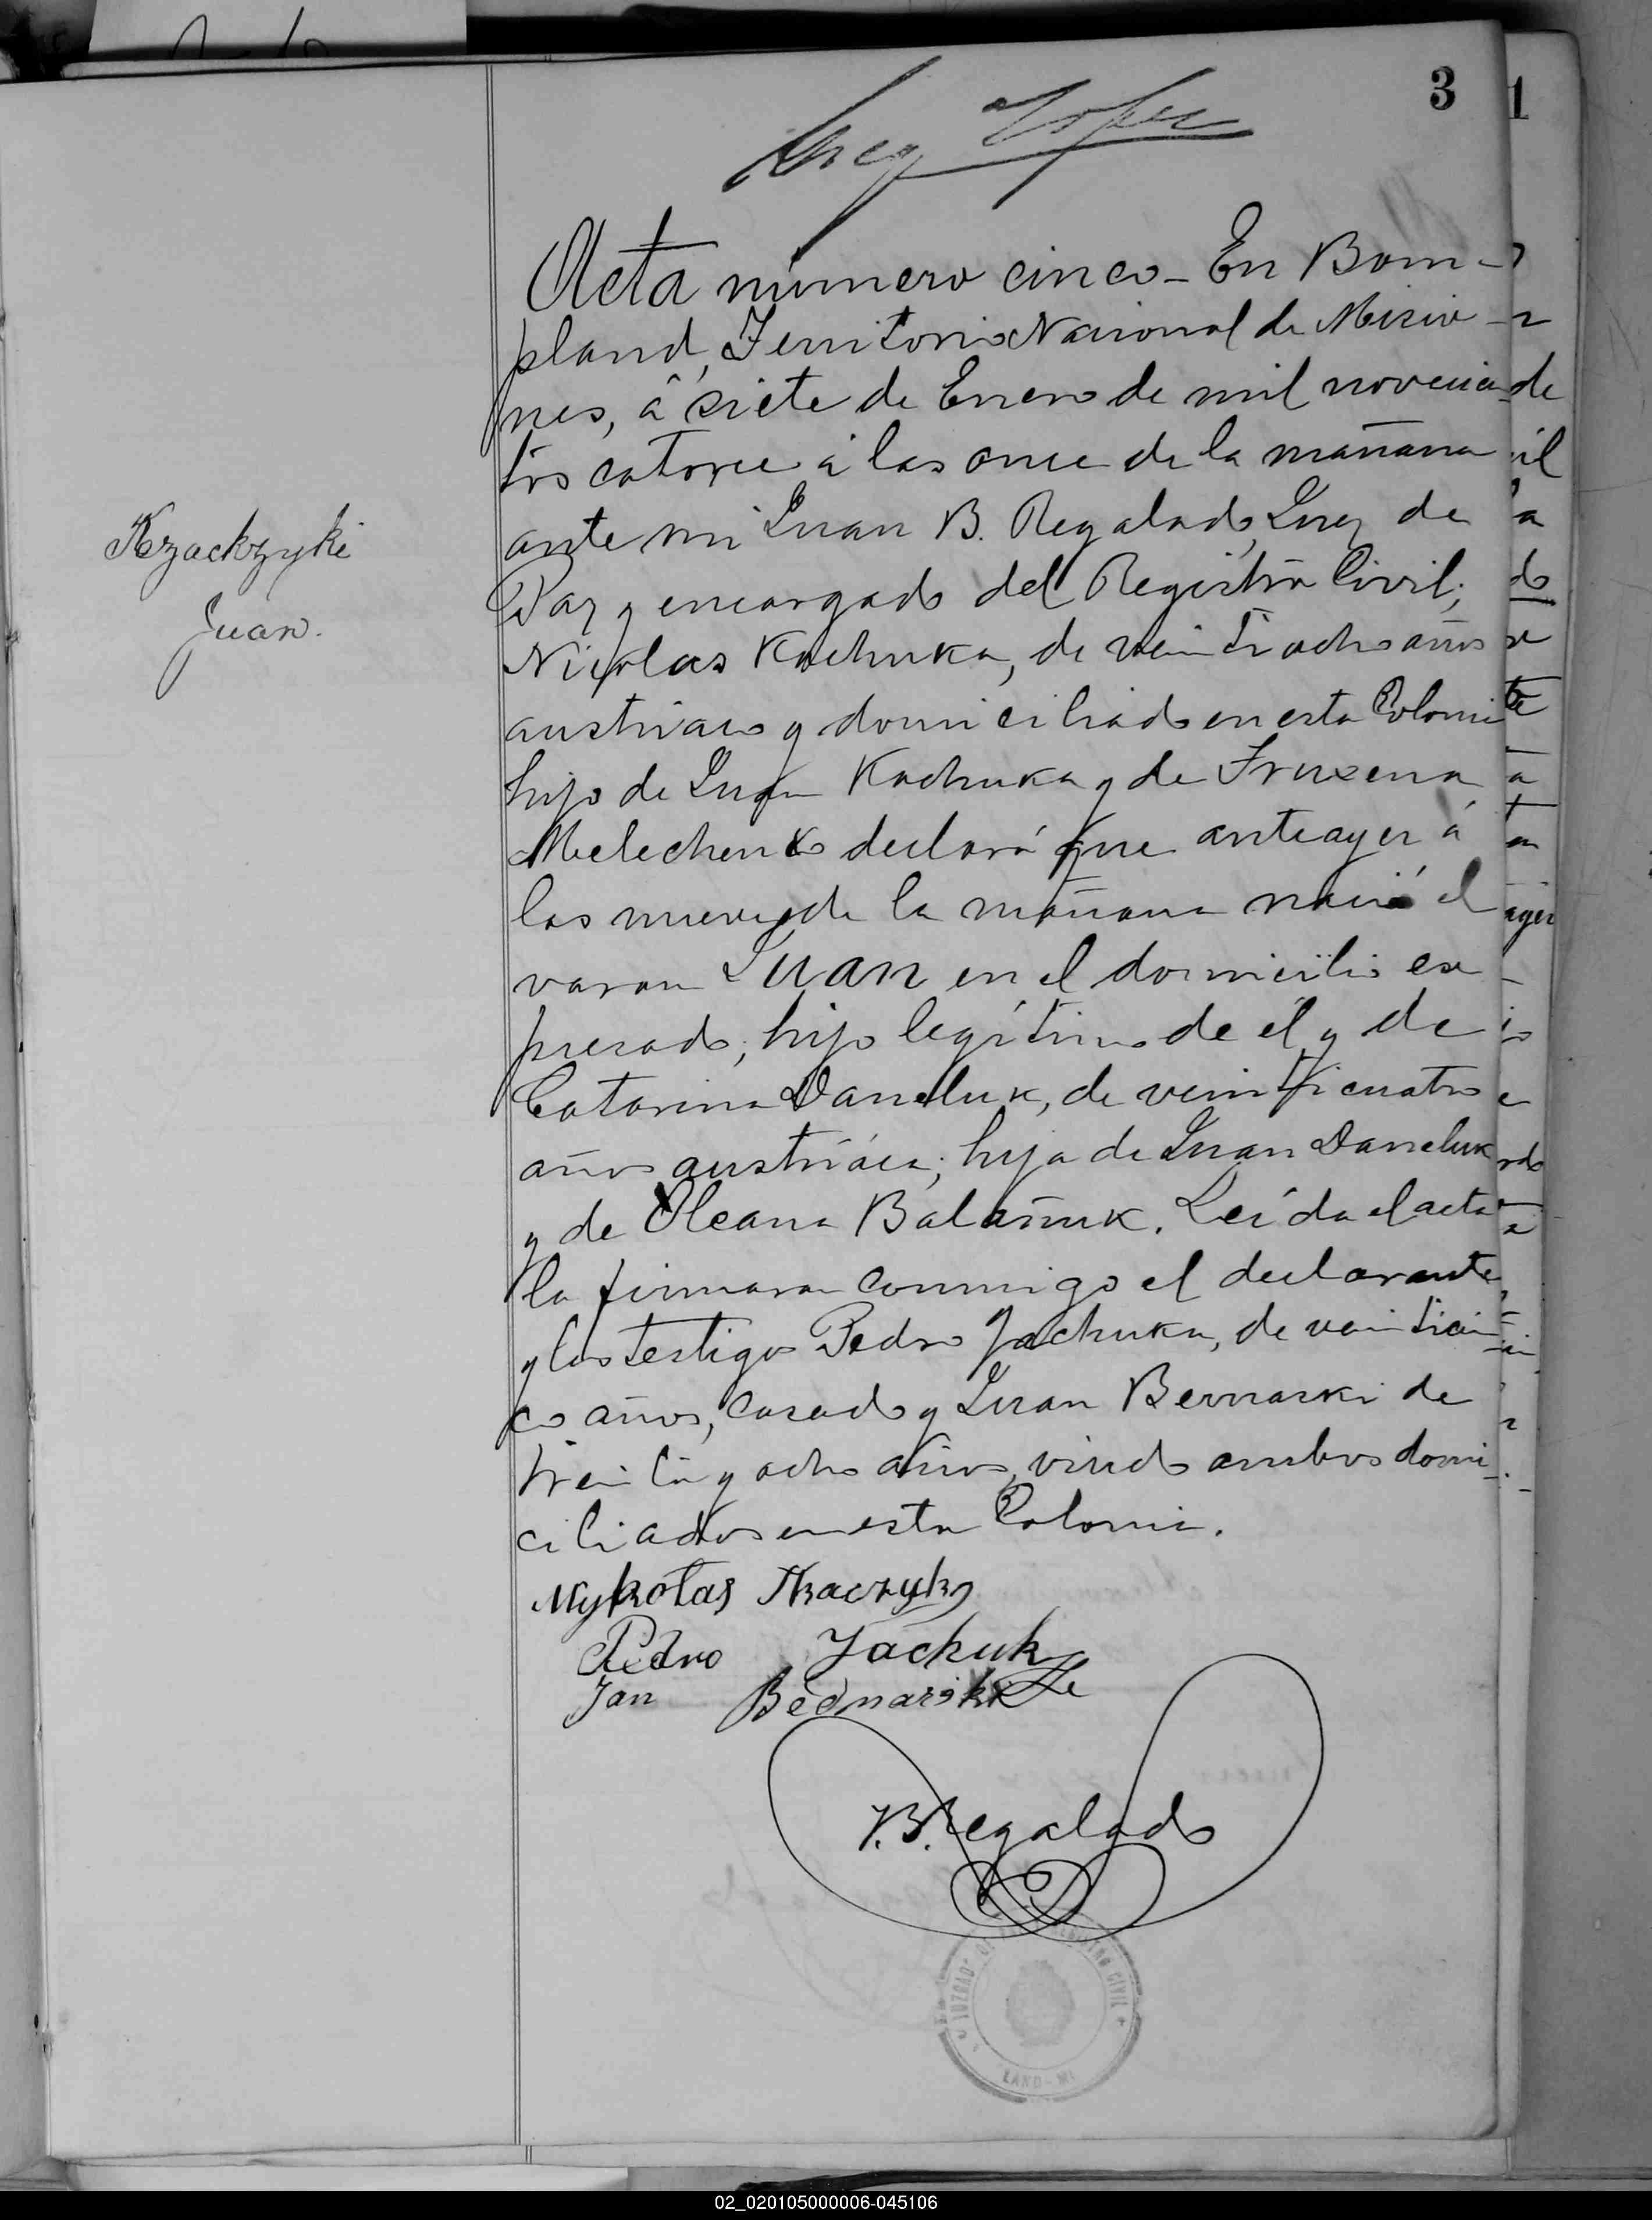 3
1
Acta número cinco - En Bom-
pland, Territorio Nacional de Misio-
nes, á siete de Enero de mil novecien-
tos catorce á las once de la mañana
ante mi Juan B. Regalado, Juez de
Paz y encargado del Registro Civil;
Kzackzyki
Juan.
Nicolas Kachuka, de veintiocho años
austriaco y domiciliado en esta Colonia
hijo de Juan Kachuka y de Fruxena
Melechenko declaró que anteayer á
las nueve de la mañana nació el
varon Juan en el domicilio ex-
presado; hijo legítimo de él y de
Catarina Daneluk, de veinticuatro
años austríaca; hija de Juan Daneluk
y de Oleana Balañuk. Leída el acta
la firmaron conmigo el declarante
y los testigos Pedro Jachuka, de veinticin-
co años, casado y Juan Bernarski de
treinta y ocho años, viudo ambos domi-
ciliados en esta Colonia.
Mykołaj Tkaczyk
Pedro Jachuk
Jan Bednarski
J.B. Regalado
JUZGADO DE REGISTRO CIVIL
LAND - MI
02_020105000006-045106